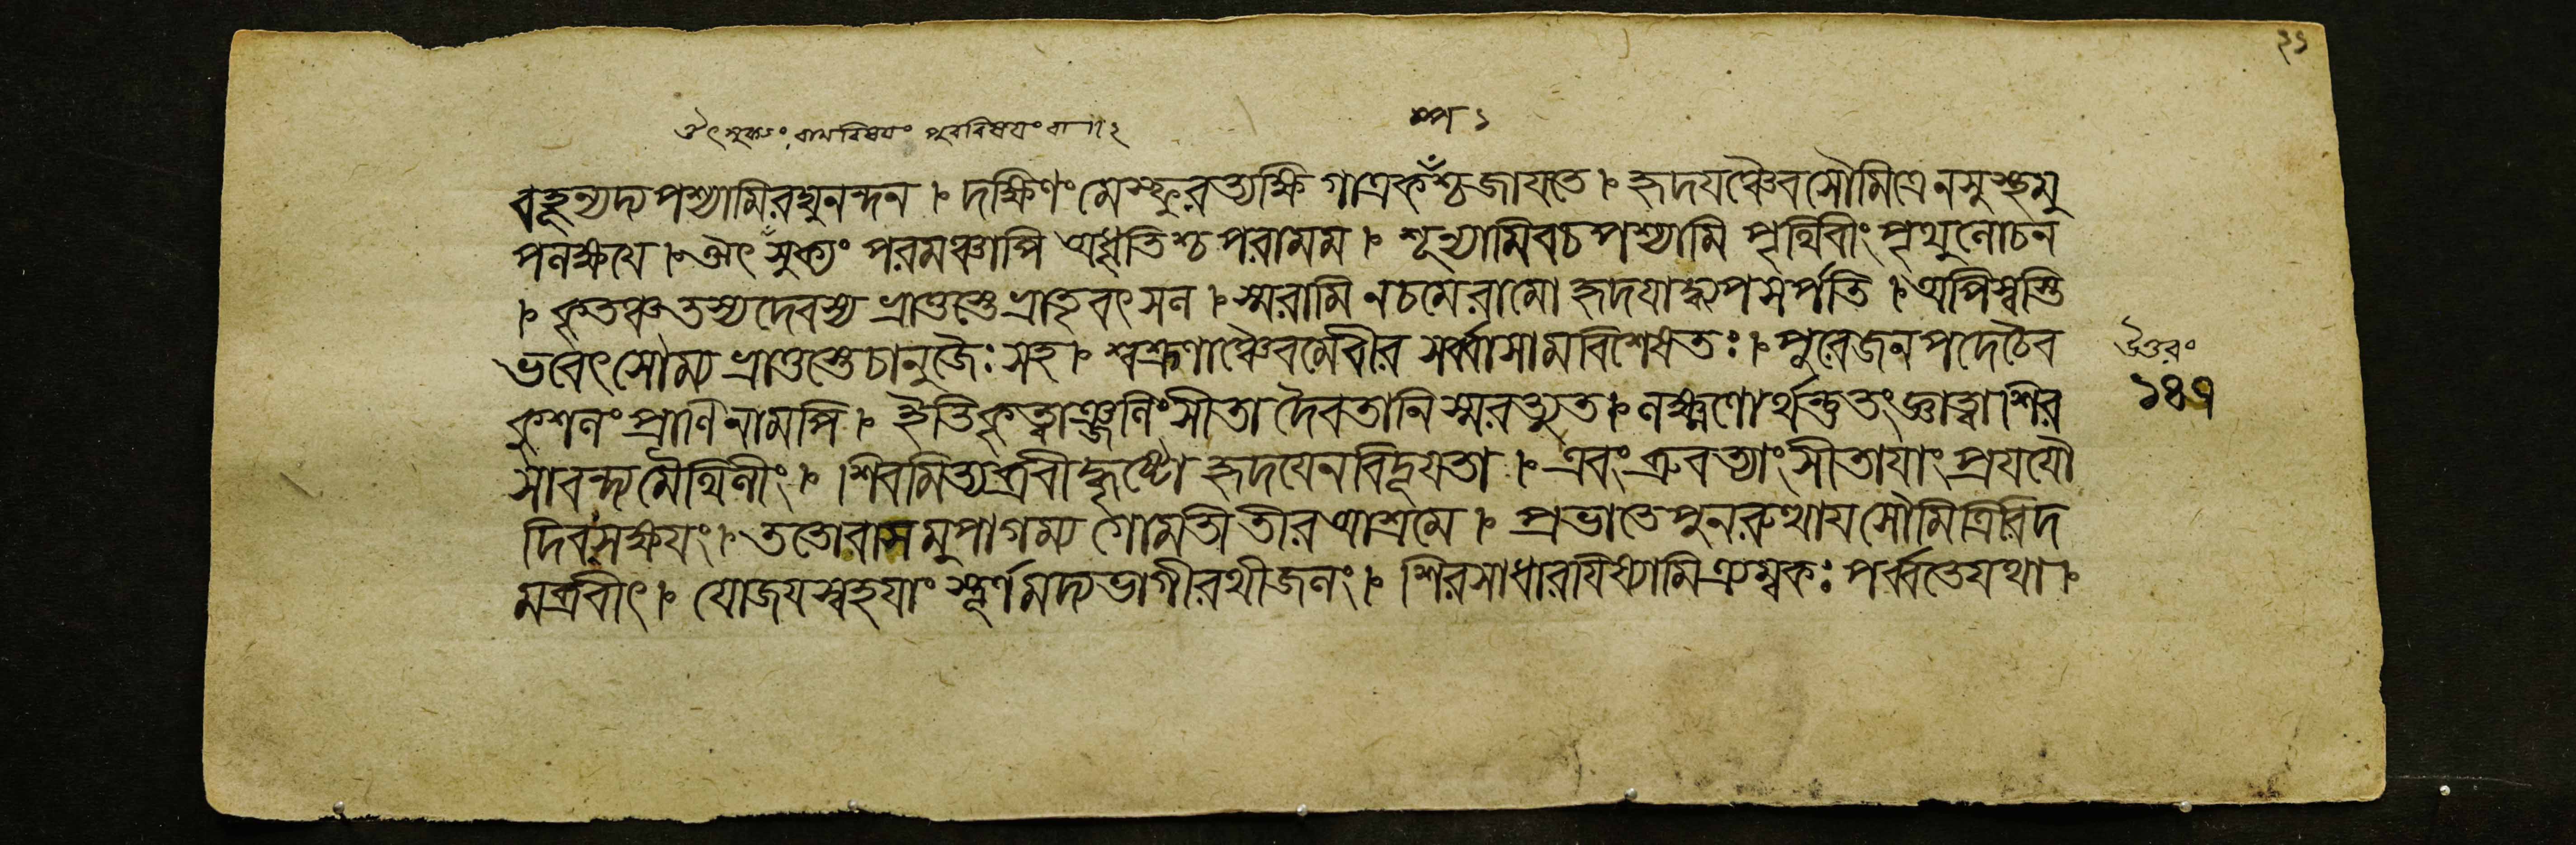 ঔৎসুক্যং রামবিষয়ং পুরবিষয়ং বা ॥ ২
বহূন্যদ্য পশ্যামি রঘুনন্দন । দক্ষিণং মে স্ফুরত্যক্ষি গাত্রকম্পশ্চ জায়তে । হৃদয়ঞ্চৈব সৌমিত্রে ন সুস্থমু
পলক্ষয়ে । ঔৎসুক্যং পরমঞ্চাপি অধৃতিশ্চ পরা মম । শূন্যামিব চ পশ্যামি পৃথিবীং পৃথুলোচন
। কৃতঞ্চ তস্য দেবস্য ভ্রাতুস্তে ভ্রাতৃবৎসল । স্মরামি ন চ মে রামো হৃদয়াদ্ব্যপসর্পতি । অপি স্বস্তি
ভবেৎ সৌম্য ভ্রাতুস্তে চানুজৈঃ সহ । শ্বশ্রূণাঞ্চৈব মে বীর সর্ব্বাসামবিশেষতঃ । পুরে জনপদে চৈব
কুশলং প্রাণিনামপি । ইতি কৃত্বাঞ্জলিং সীতা দৈবতানি স্মরত্যুত । লক্ষ্মণোর্থন্তু তং জ্ঞাত্বা শির
সা বন্দ্য মৈথিলীং । শিবমিত্যব্রবীদ্ধৃষ্টো হৃদয়েন বিদূয়তা । এবং ব্রুবত্যাং সীতায়াং প্রযযৌ
দিবসক্ষয়ং । ততো বাসমুপাগম্য গোমতী তীর আশ্রমে । প্রভাতে পুনরুত্থায় সৌমিত্রিরিদ
মব্রবীৎ । যোজয়স্ব হয়াং স্তূর্ণমদ্য ভাগীরথীজলং । শিরসা ধারয়িষ্যামি ত্র্যম্বকঃ পর্ব্বতে যথা ।
উত্তরং
১৪৭